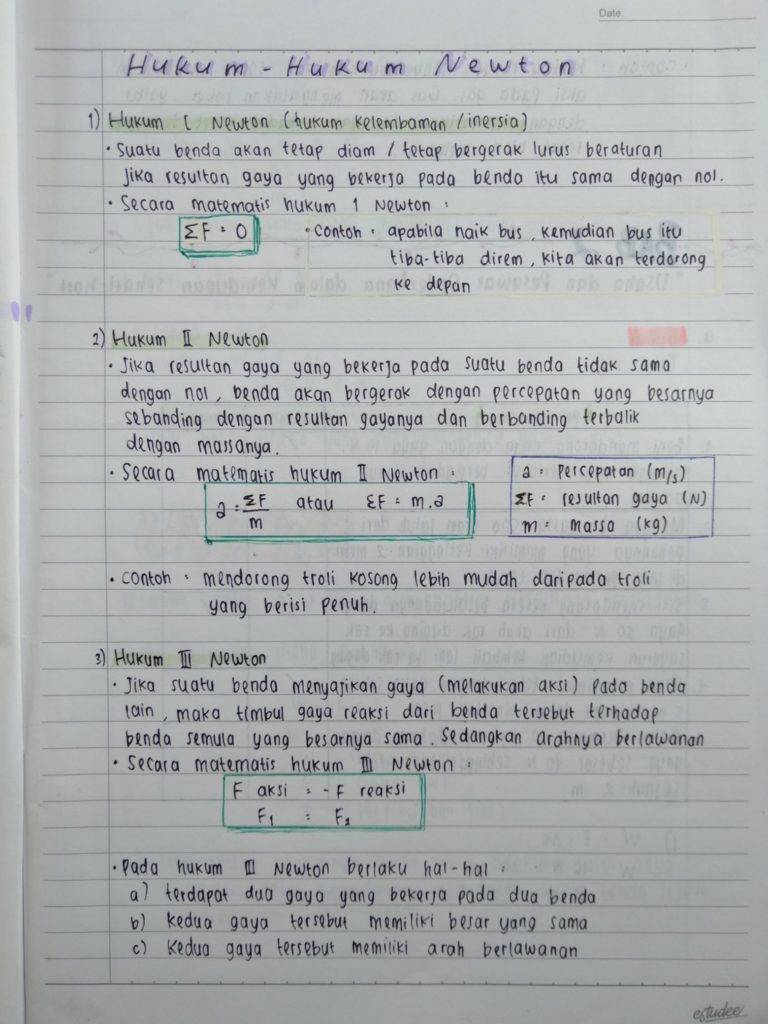 Date.
Hukum - Hukum Newton
1) Hukum I Newton (hukum kelembaman / inersia)
• Suatu benda akan tetap diam / tetap bergerak lurus beraturan
jika resultan gaya yang bekerja pada benda itu sama dengan nol.
• Secara matematis hukum 1 Newton :
ΣF = 0
• Contoh : apabila naik bus, kemudian bus itu
tiba-tiba direm, kita akan terdorong
ke depan
2) Hukum II Newton
• Jika resultan gaya yang bekerja pada suatu benda tidak sama
dengan nol, benda akan bergerak dengan percepatan yang besarnya
sebanding dengan resultan gayanya dan berbanding terbalik
dengan massanya.
• Secara matematis hukum II Newton :
a = ΣF/m atau ΣF = m.a
a = percepatan (m/s)
ΣF = resultan gaya (N)
m = massa (kg)
• Contoh : mendorong troli kosong lebih mudah daripada troli
yang berisi penuh.
3) Hukum III Newton
• Jika suatu benda menyajikan gaya (melakukan aksi) pada benda
lain, maka timbul gaya reaksi dari benda tersebut terhadap
benda semula yang besarnya sama. Sedangkan arahnya berlawanan
• Secara matematis hukum III Newton :
F aksi = -F reaksi
F₁ = F₂
• Pada hukum III Newton berlaku hal-hal :
a) terdapat dua gaya yang bekerja pada dua benda
b) kedua gaya tersebut memiliki besar yang sama
c) kedua gaya tersebut memiliki arah berlawanan
estudee